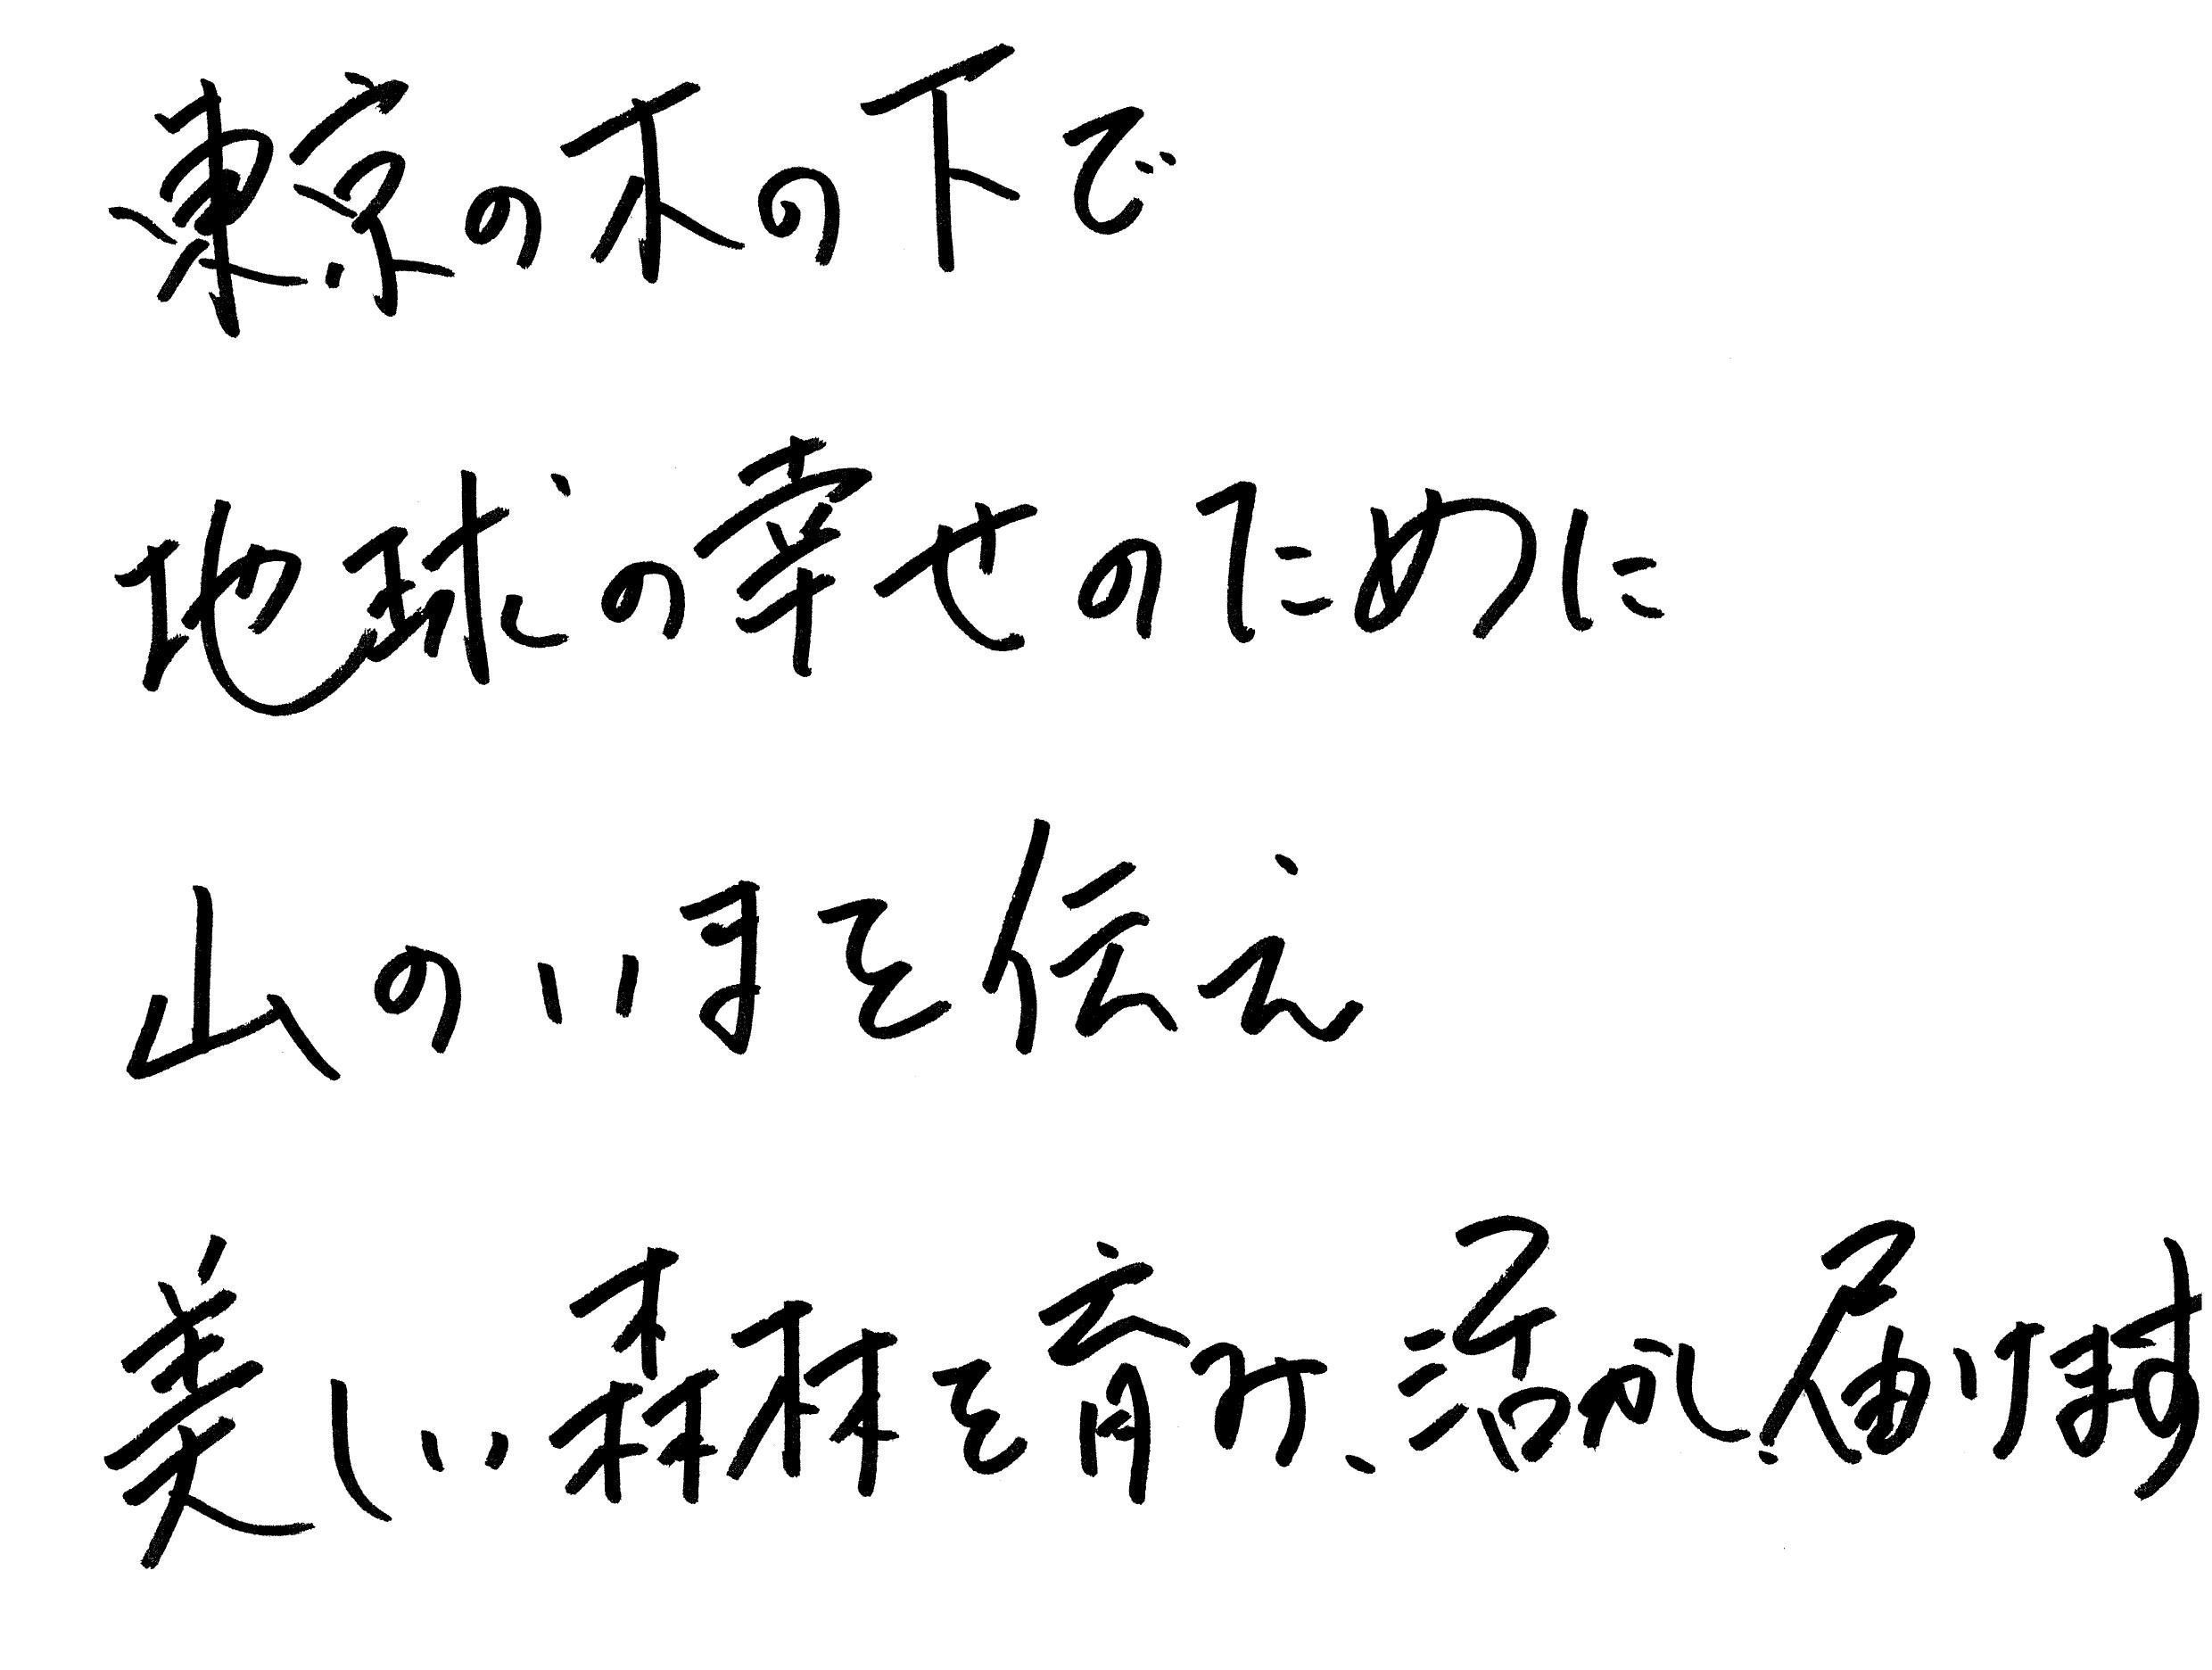 東京の木の下で
地球の幸せのために
山のいまを伝え
美しい森林を育み、活かし届けます